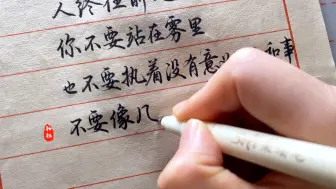 人终往前
你不要站在雾里
也不要执着没有意 和事
不要像几